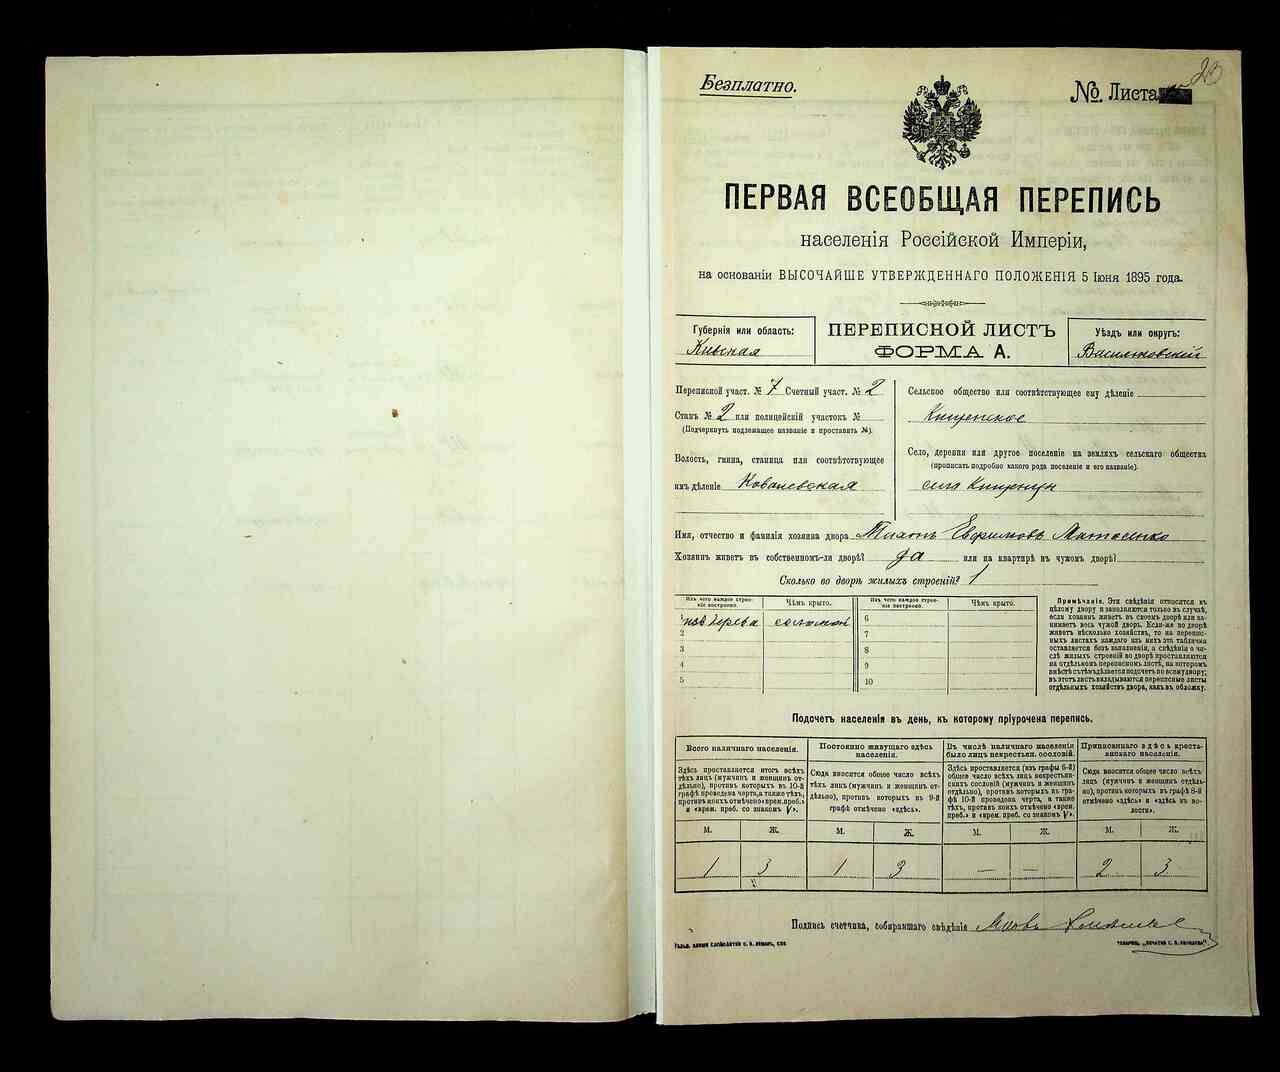 Безплатно.
№ Листа
23
ПЕРВАЯ ВСЕОБЩАЯ ПЕРЕПИСЬ
населенія Россійской Имперіи,
на основаніи ВЫСОЧАЙШЕ УТВЕРЖДЕННАГО ПОЛОЖЕНІЯ 5 Іюня 1895 года.
Губернія или область:
Кіевская
ПЕРЕПИСНОЙ ЛИСТЪ
ФОРМА А.
Уѣздъ или округъ:
Васильковскій
Переписной участ. № 7 Счетный участ. № 2
Станъ № 2 или полицейскій участокъ №
(Подчеркнуть подлежащее названіе и проставить №).
Волость, гмина, станица или соотвѣтствующее
имъ дѣленіе Ковалевская
Сельское общество или соотвѣтствующее ему дѣленіе
Село, деревня или другое поселеніе на земляхъ сельскаго общества
(прописать подробно какого рода поселеніе и его названіе).
Имя, отчество и фамилія хозяина двора Тихонъ Евфимовъ
Хозяинъ живетъ въ собственномъ-ли дворѣ? да или на квартирѣ въ чужомъ дворѣ?
Сколько во дворѣ жилыхъ строеній? 1
Изъ чего каждое строеніе построено. Чѣмъ крыто. Изъ чего каждое строеніе построено. Чѣмъ крыто.
1 изъ дерева соломой 6
2 7
3 8
4 9
5 10
Примѣчаніе. Эти свѣдѣнія относятся къ
цѣлому двору и заполняются только въ случаѣ,
если хозяинъ живетъ въ своемъ дворѣ или занимаетъ
весь чужой дворъ. Если-же во дворѣ
живетъ нѣсколько хозяйствъ, то на переписныхъ
листахъ каждаго изъ нихъ эта табличка
оставляется безъ заполненія, а свѣдѣнія о числѣ
жилыхъ строеній во дворѣ проставляются
на отдѣльномъ переписномъ листѣ, на которомъ
вмѣстѣ съ тѣмъ дѣлается подсчетъ по всему двору;
въ этотъ листъ вкладываются переписные листы
отдѣльныхъ хозяйствъ двора, какъ въ обложку.
Подсчетъ населенія въ день, къ которому пріурочена перепись.
Всего наличнаго населенія.
Здѣсь проставляется итогъ всѣхъ
тѣхъ лицъ (мужчинъ и женщинъ отдѣльно),
противъ которыхъ въ 10-й
графѣ проведена черта, а также тѣхъ,
противъ коихъ отмѣчено «врем. преб.»
и «врем. преб. со знакомъ V».
Постоянно живущаго здѣсь населенія.
Сюда вносится общее число всѣхъ
тѣхъ лицъ (мужчинъ и женщинъ отдѣльно),
противъ которыхъ въ 9-й
графѣ отмѣчено «здѣсь».
Въ числѣ наличнаго населенія
было лицъ некрестьян. сословій.
Здѣсь проставляется (изъ графы 6-й)
общее число всѣхъ лицъ некрестьянскихъ
сословій (мужчинъ и женщинъ
отдѣльно), противъ которыхъ въ графѣ
10-й проведена черта, а также
тѣхъ, противъ коихъ отмѣчено «врем.
преб.» и «врем. преб. со знакомъ V».
Приписаннаго здѣсь крестьянскаго населенія.
Сюда вносится общее число всѣхъ
лицъ (мужчинъ и женщинъ отдѣльно),
противъ которыхъ въ графѣ 8-й
отмѣчено «здѣсь» и «здѣсь въ волости».
М. Ж. М. Ж. М. Ж. М. Ж.
1 3 1 3 — — 2 3
Подпись счетчика, собиравшаго свѣдѣнія